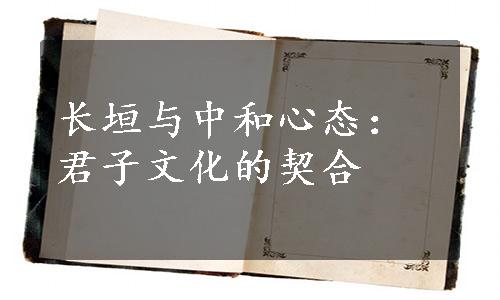 长垣与中和心态：
君子文化的契合